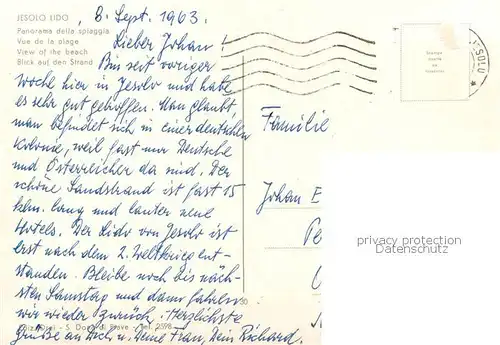 JESOLO LIDO
Panorama della spiaggia
Vue de la plage
View of the beach
Blick auf den Strand
8. Sept. 1963.
Lieber Johan!
Bin seit voriger
Woche hier in Jesolo und habe
es sehr gut getroffen. Man glaubt,
man befindet sich in einer deutschen
Kolonie, weil fast nur Deutsche
und Österreicher da sind. Der
schöne Sandstrand ist fast 15
klm. lang und lauter neue
Hotels. Der Lido von Jesolo ist
erst nach dem 2. Weltkrieg ent-
standen. Bleibe noch bis näch-
sten Samstag und dann fahren
wir wieder zurück. Herzlichste
Grüße an Dich u. Deine Frau, Dein Richard.
S. Donà di Piave - Tel. 2598
30
Familie
Johan E
privacy protection
Datenschutz